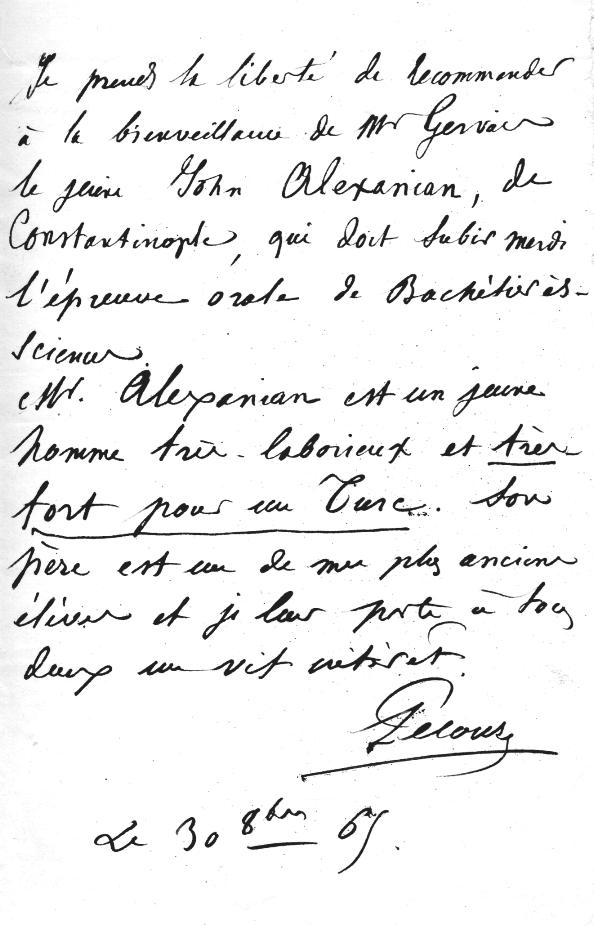 Je prends la liberté de recommander
à la bienveillance de Mr Gervais
le jeune John Alexanian, de
Constantinople, qui doit subir mardi
l'épreuve orale de Bachelier ès-
Sciences.
Mr. Alexanian est un jeune
homme très-laborieux et très-
fort pour un Turc. Son
père est un de mes plus anciens
élèves et je leur porte à tous
deux un vif intérêt.
Le 30 8bre 65.